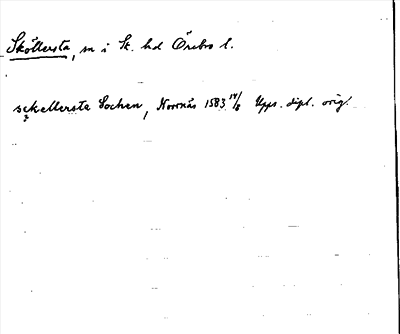 Sköllersta, sn i Sk. hd Örebro l.
sckellersta Sochen, Norrnäs 1583 14/8 Upps. dipl. orig.